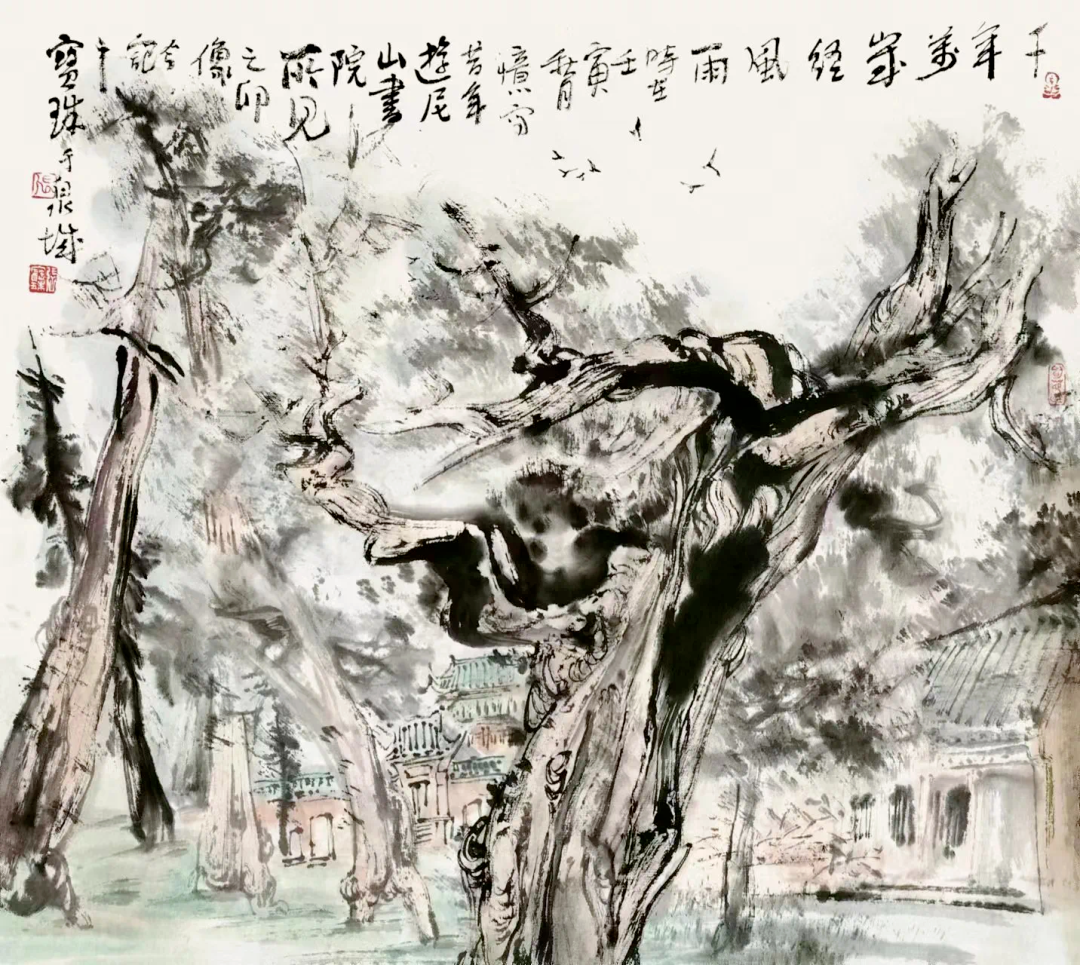 千
年
萬
歲
經
風
雨
時在
壬
寅
秋月
憶寫
昔年
遊尼
山書
院
所見
之印
像
記
寶珠于泉城